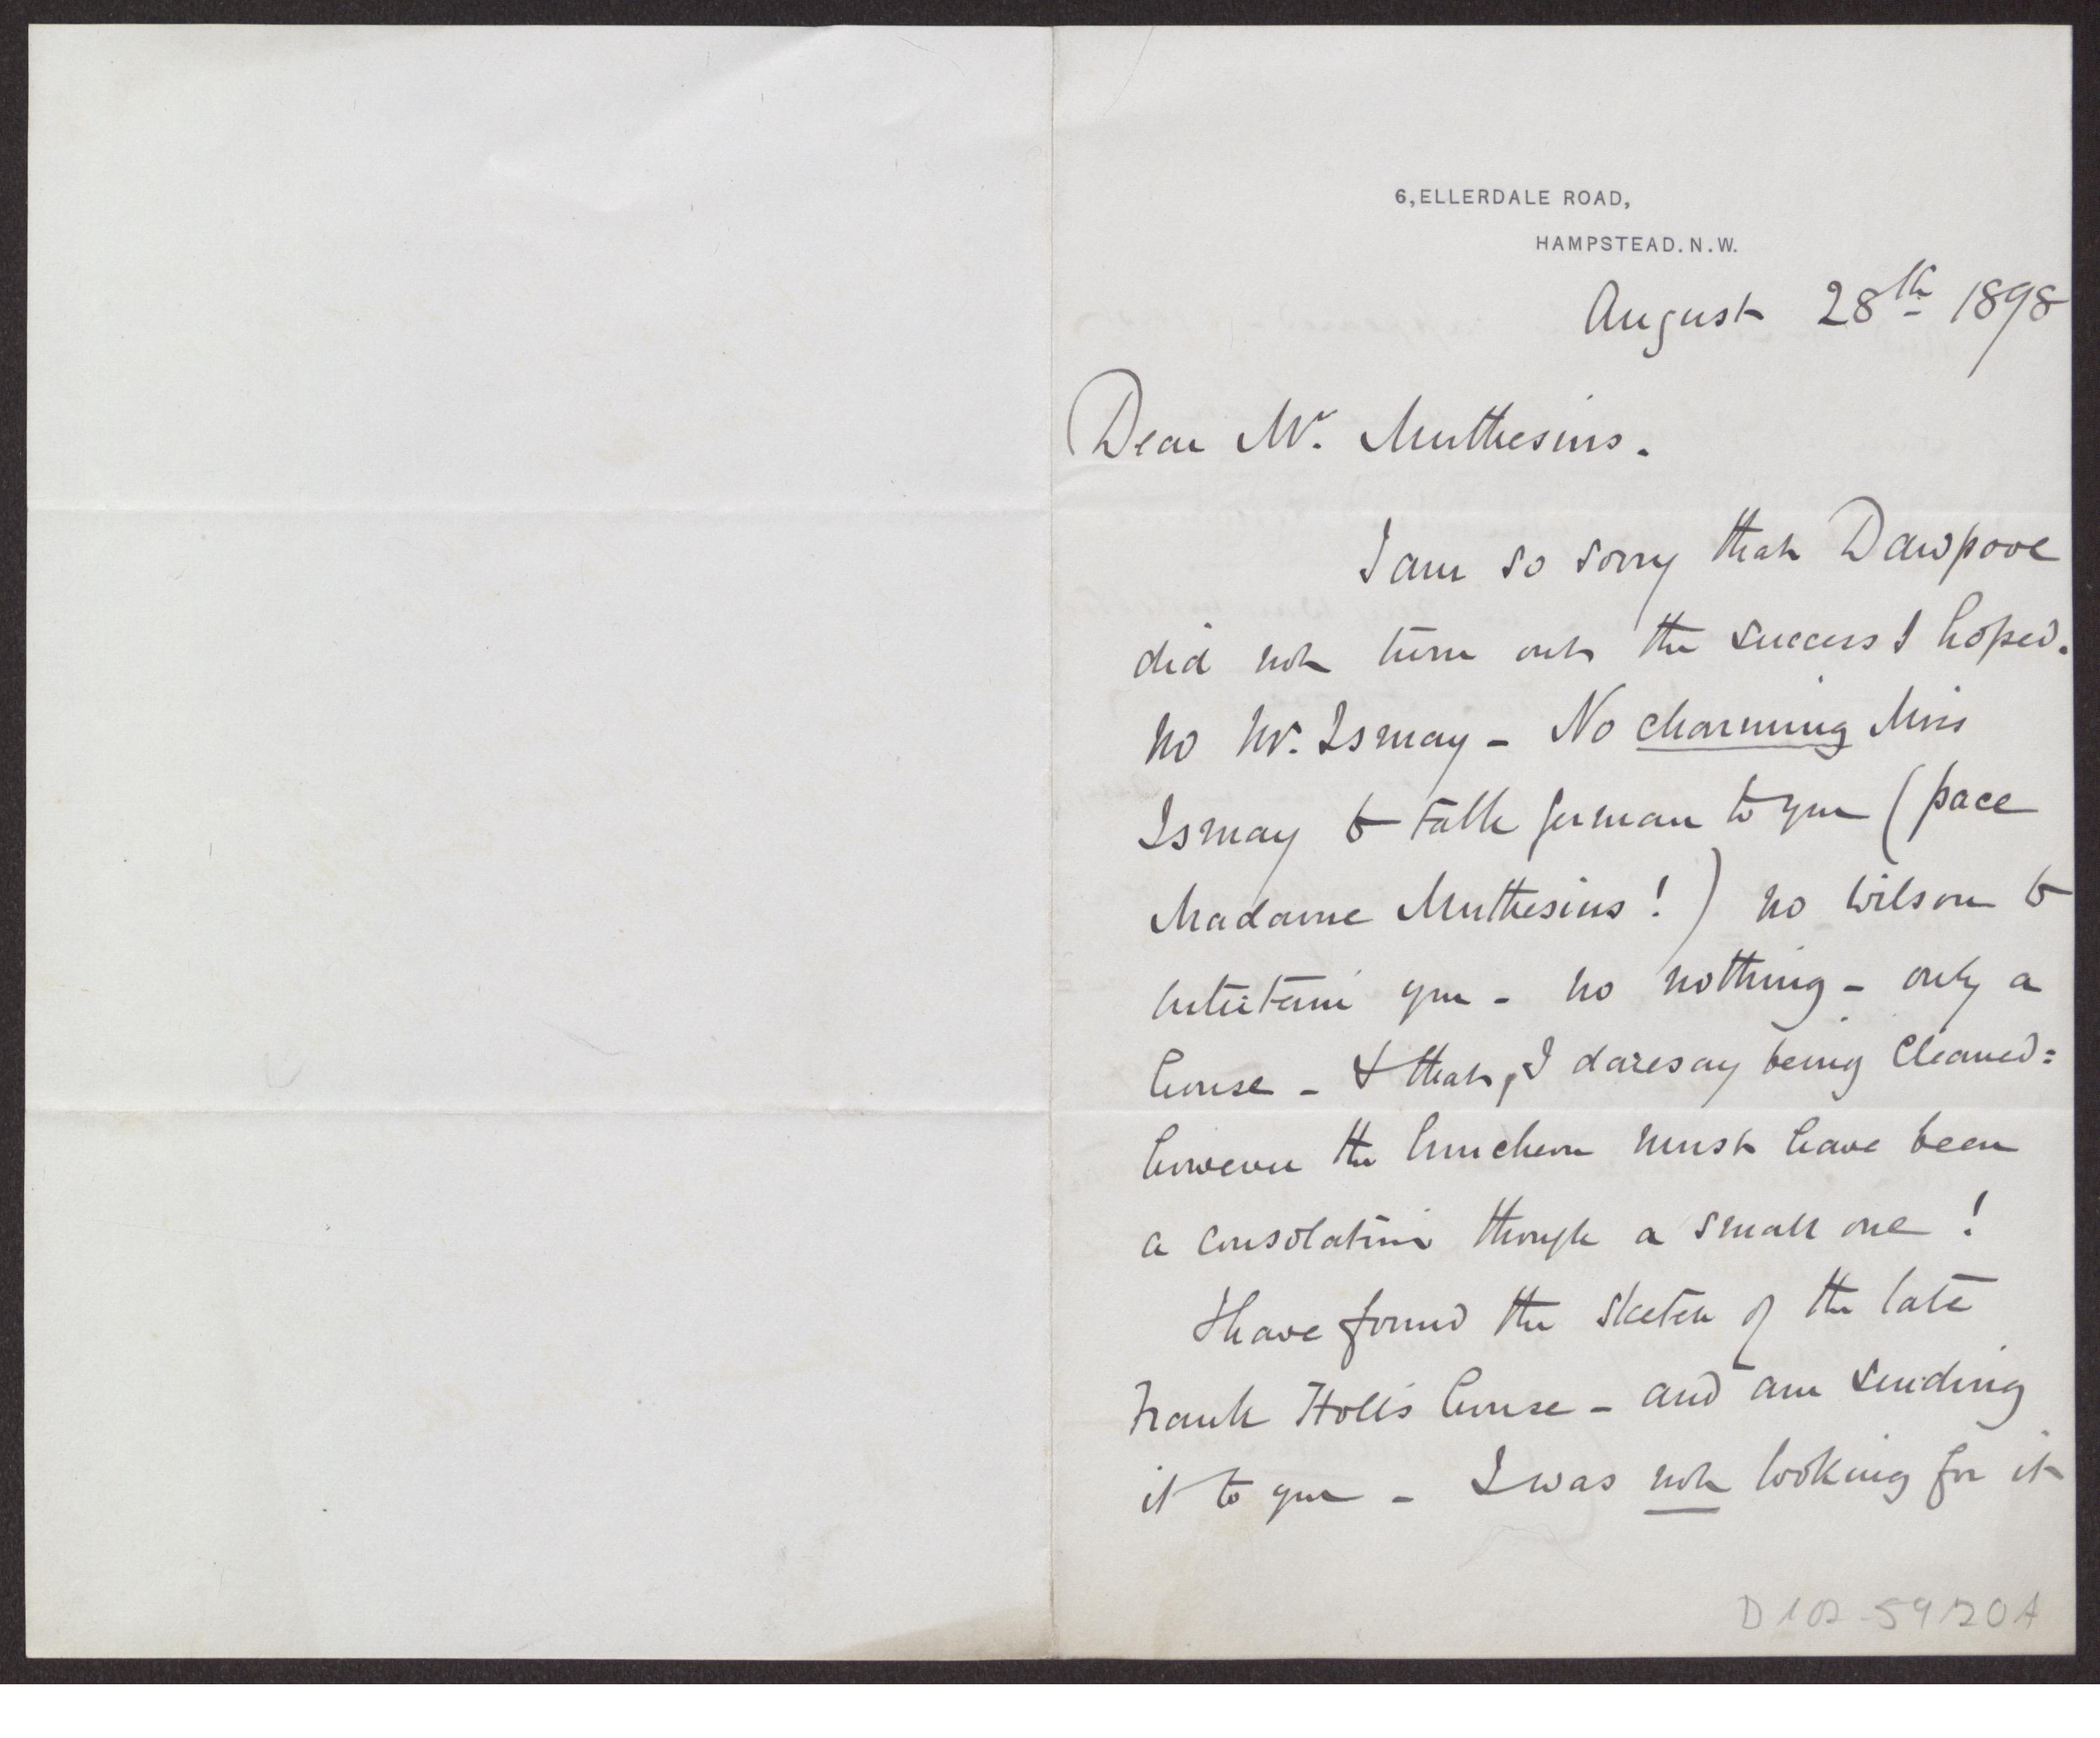 6, ELLERDALE ROAD,
HAMPSTEAD. N. W.
August 28th 1898
Dear Mr. Muthesius.
I am so sorry that Dawpool
did not turn out the success I hoped.
No Mr. Ismay - No charming Miss
Ismay to talk german to you (pace
Madame Muthesius!) no Wilson to
entertain you - no nothing - only a
house - & that, I daresay being cleaned:
however the luncheon must have been
a consolation though a small one!
I have found the sketch of the late
Frank Holl's house - and am sending
it to you - I was not looking for it
D 102-5920 A